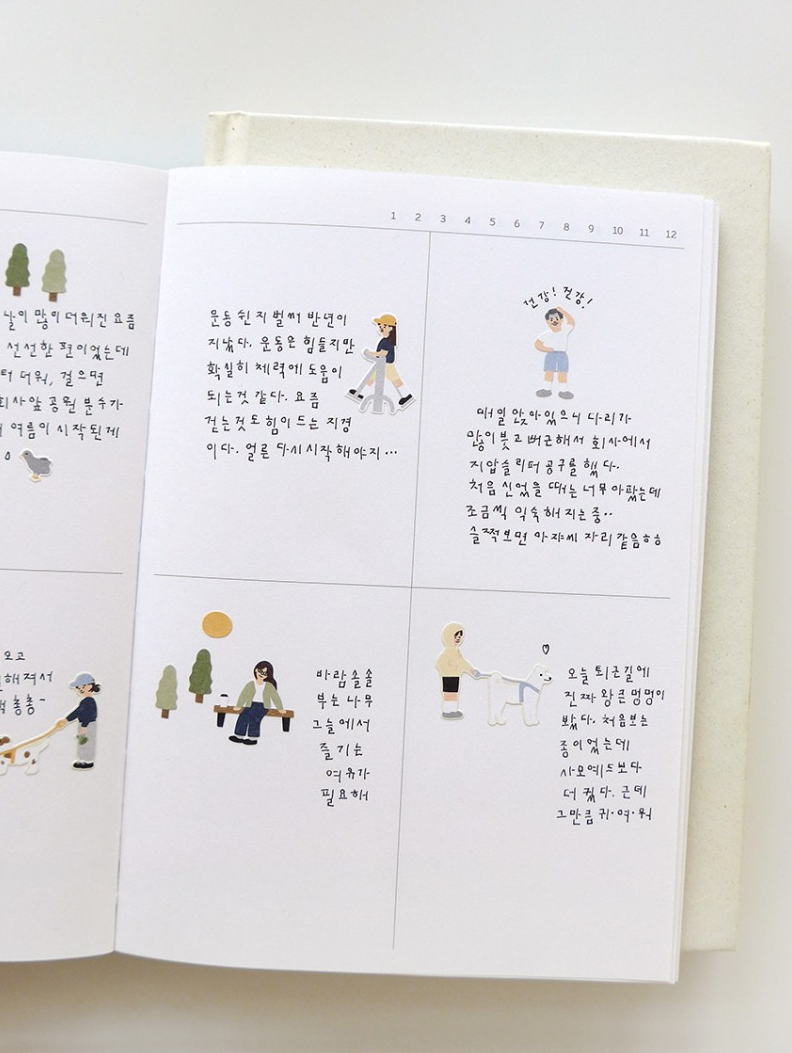 날이 많이 더워진 요즘
선선한 편이었는데
터 더워, 걸으면
회사 앞 공원 분수가
여름이 시작된게
오고
해져서
총총~
1 2 3 4 5 6 7 8 9 10 11 12
운동 쉰지 벌써 반년이
지났다. 운동은 힘들지만
확실히 체력에 도움이
되는것 같다. 요즘
걷는것도 힘이 드는 지경
이다. 얼른 다시 시작해야지...
건강! 건강!
매일 앉아있으니 다리가
많이 붓고 뻐근해서 회사에서
지압슬리퍼 공구를 했다.
처음 신었을 때는 너무 아팠는데
조금씩 익숙해지는 중..
슬쩍보면 아자씨 자리 같음ㅎㅎ
바람 솔솔
부는 나무
그늘에서
즐기는
여유가
필요해
오늘 퇴근길에
진짜 왕큰 멍멍이
봤다. 처음보는
종이었는데
사모예드보다
더 컸다. 근데
그만큼 귀·여·워